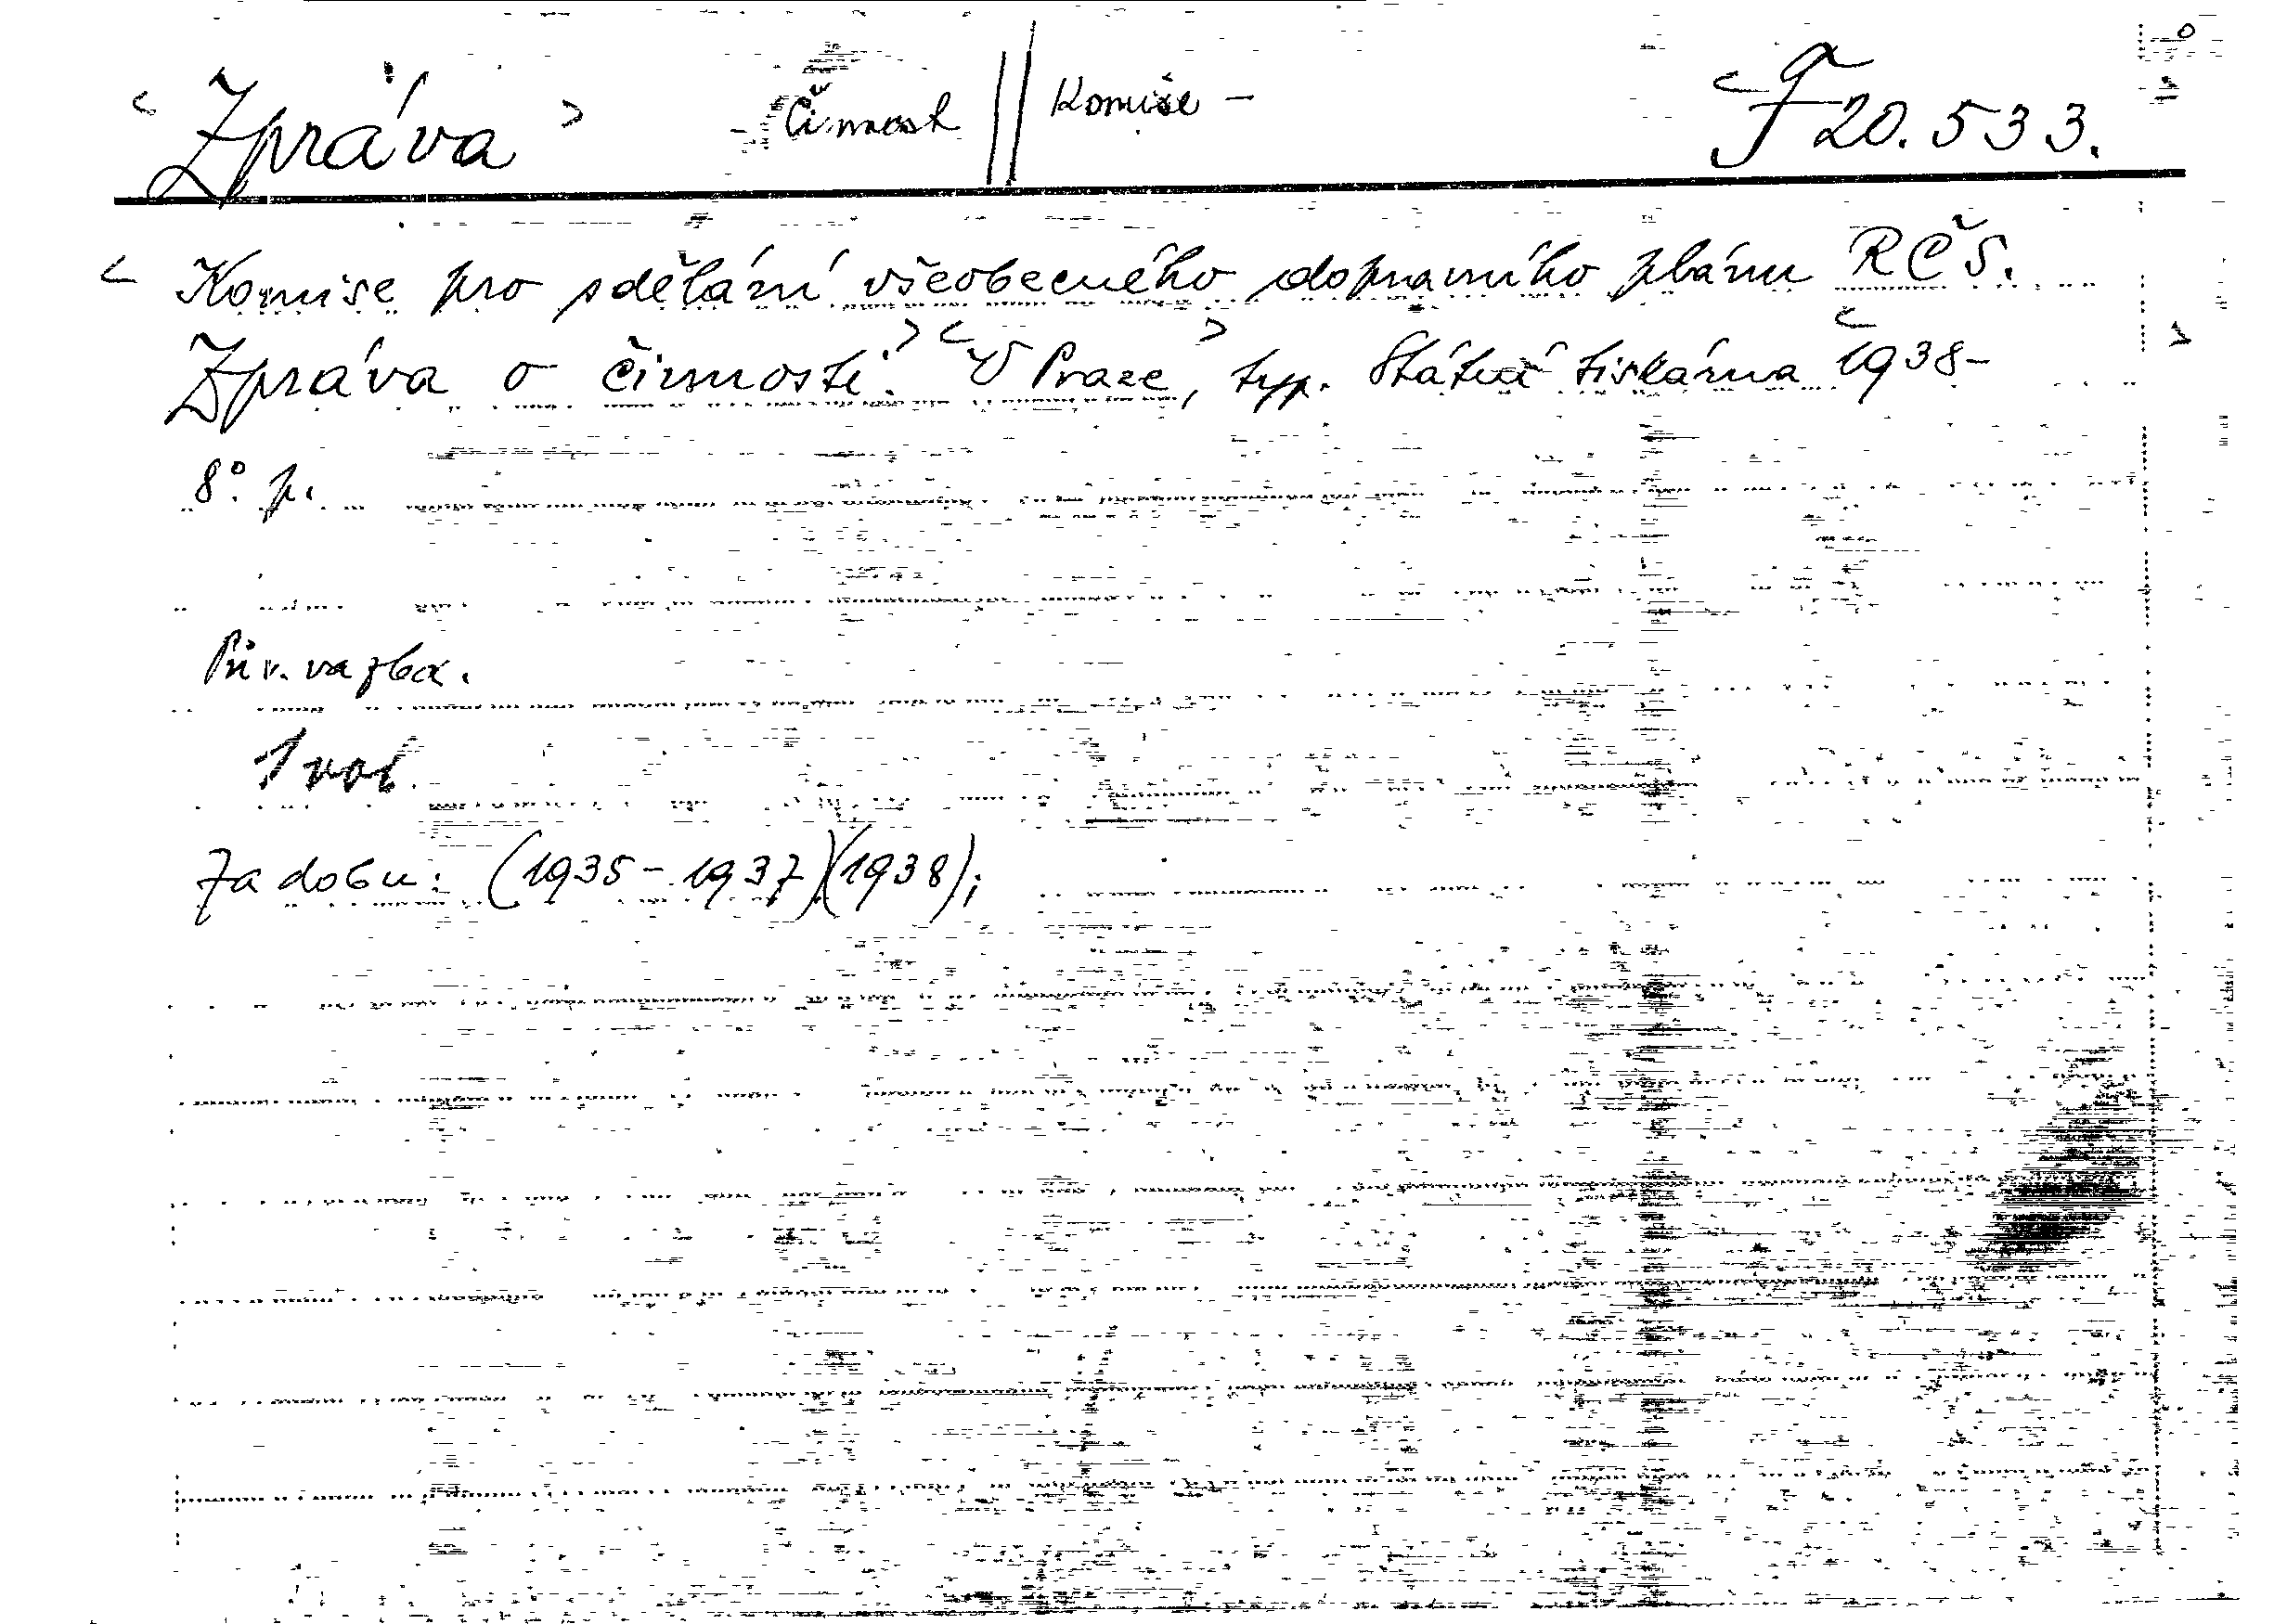 < Zpráva > - Činnost || Komise - < F 20.533.
< Komise pro sdělání všeobecného dopravního plánu RČS.
Zpráva o činnosti. > < V Praze >, typ. Státní tiskárna < 1938- >
8°. p.
Pův. vazba.
1 vol.
Za dobu: (1935-1937)(1938);